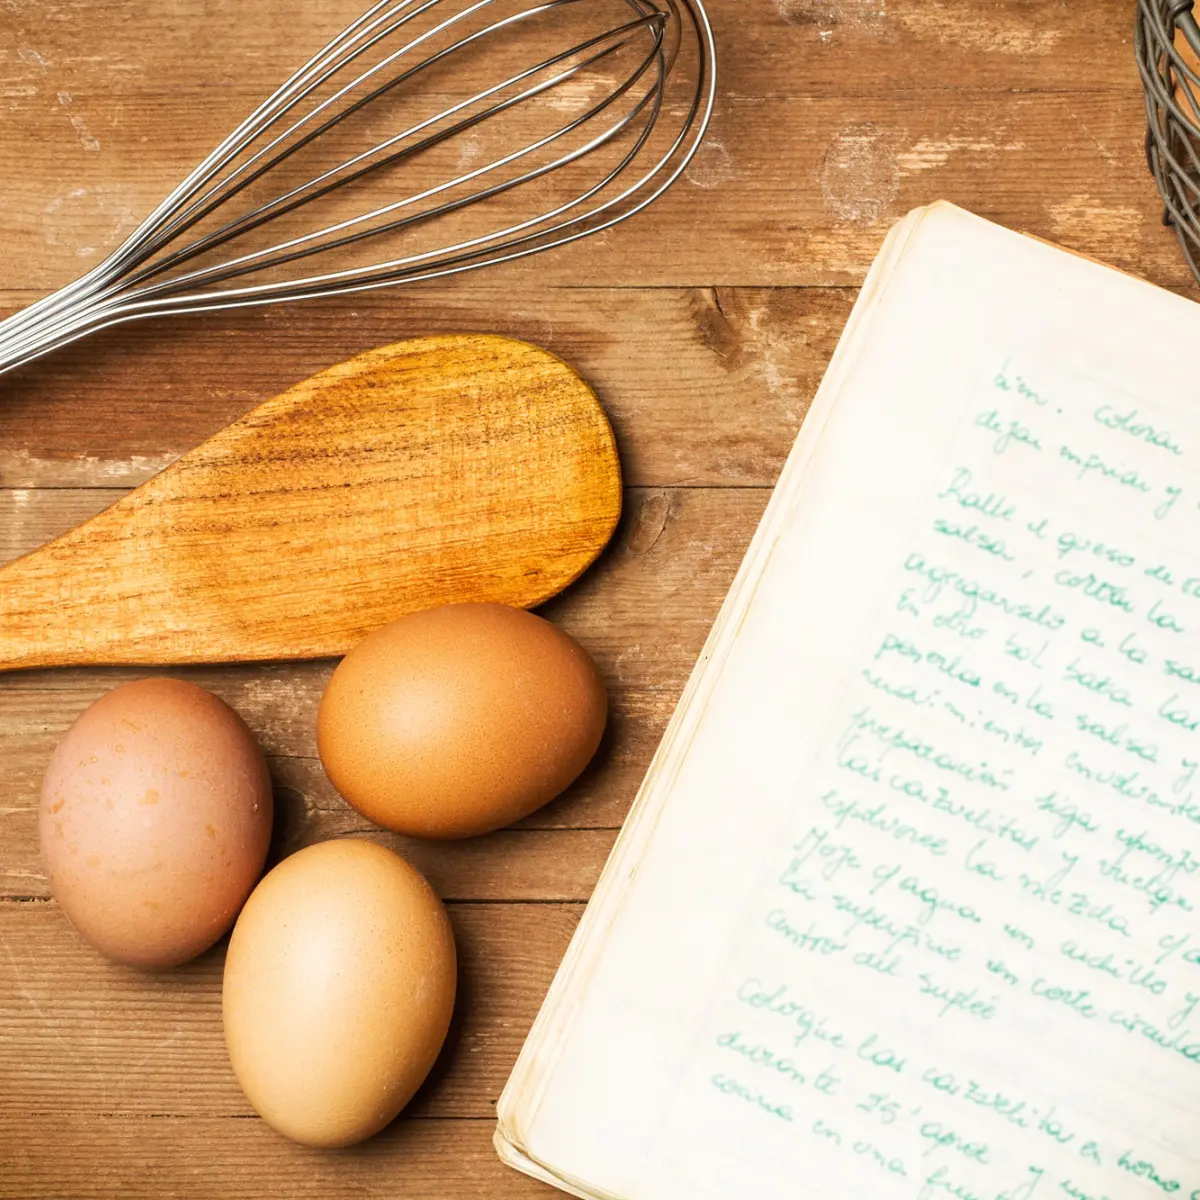 bien. Colorar
dejar enfriar y
Ralle el queso de
salsa, cortar la
agregarselo a la sal
En otro bol bata las
ponerlas en la salsa y
movimientos envolventes
preparación siga esponj
las cazuelitas y vuelque
espolvoree la mezcla c/
Moje c/ agua un cuchillo y
la superficie un corte circular
centro del suflé
Coloque las cazuelitas en horno
durante 25'
cocine en una